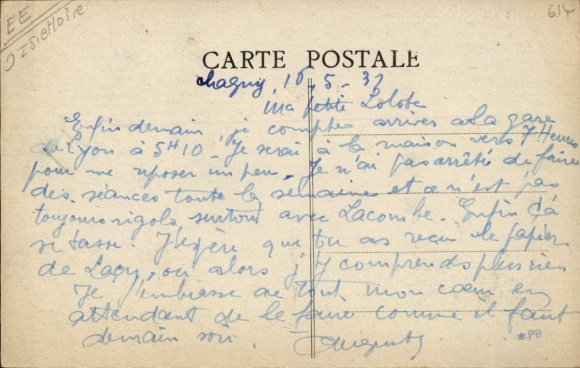 EE
614
CARTE POSTALE
Chagny, 16-5-32
Ma petite Lolote
Enfin demain, je compte arriver à la gare
de Lyon à 5H10. Je serai à la maison vers 7 Heures
pour me reposer un peu. Je n'ai pas arrêté de faire
des séances toute la semaine et ce n'est pas
toujours rigolo surtout avec Lacombe. Enfin ça
se tasse. J'espère que tu as reçu le papier
de Lagny, ou alors j'y comprends plus rien
Je t'embrasse de tout mon cœur en
attendant de le faire comme il faut
demain soir.
*PB